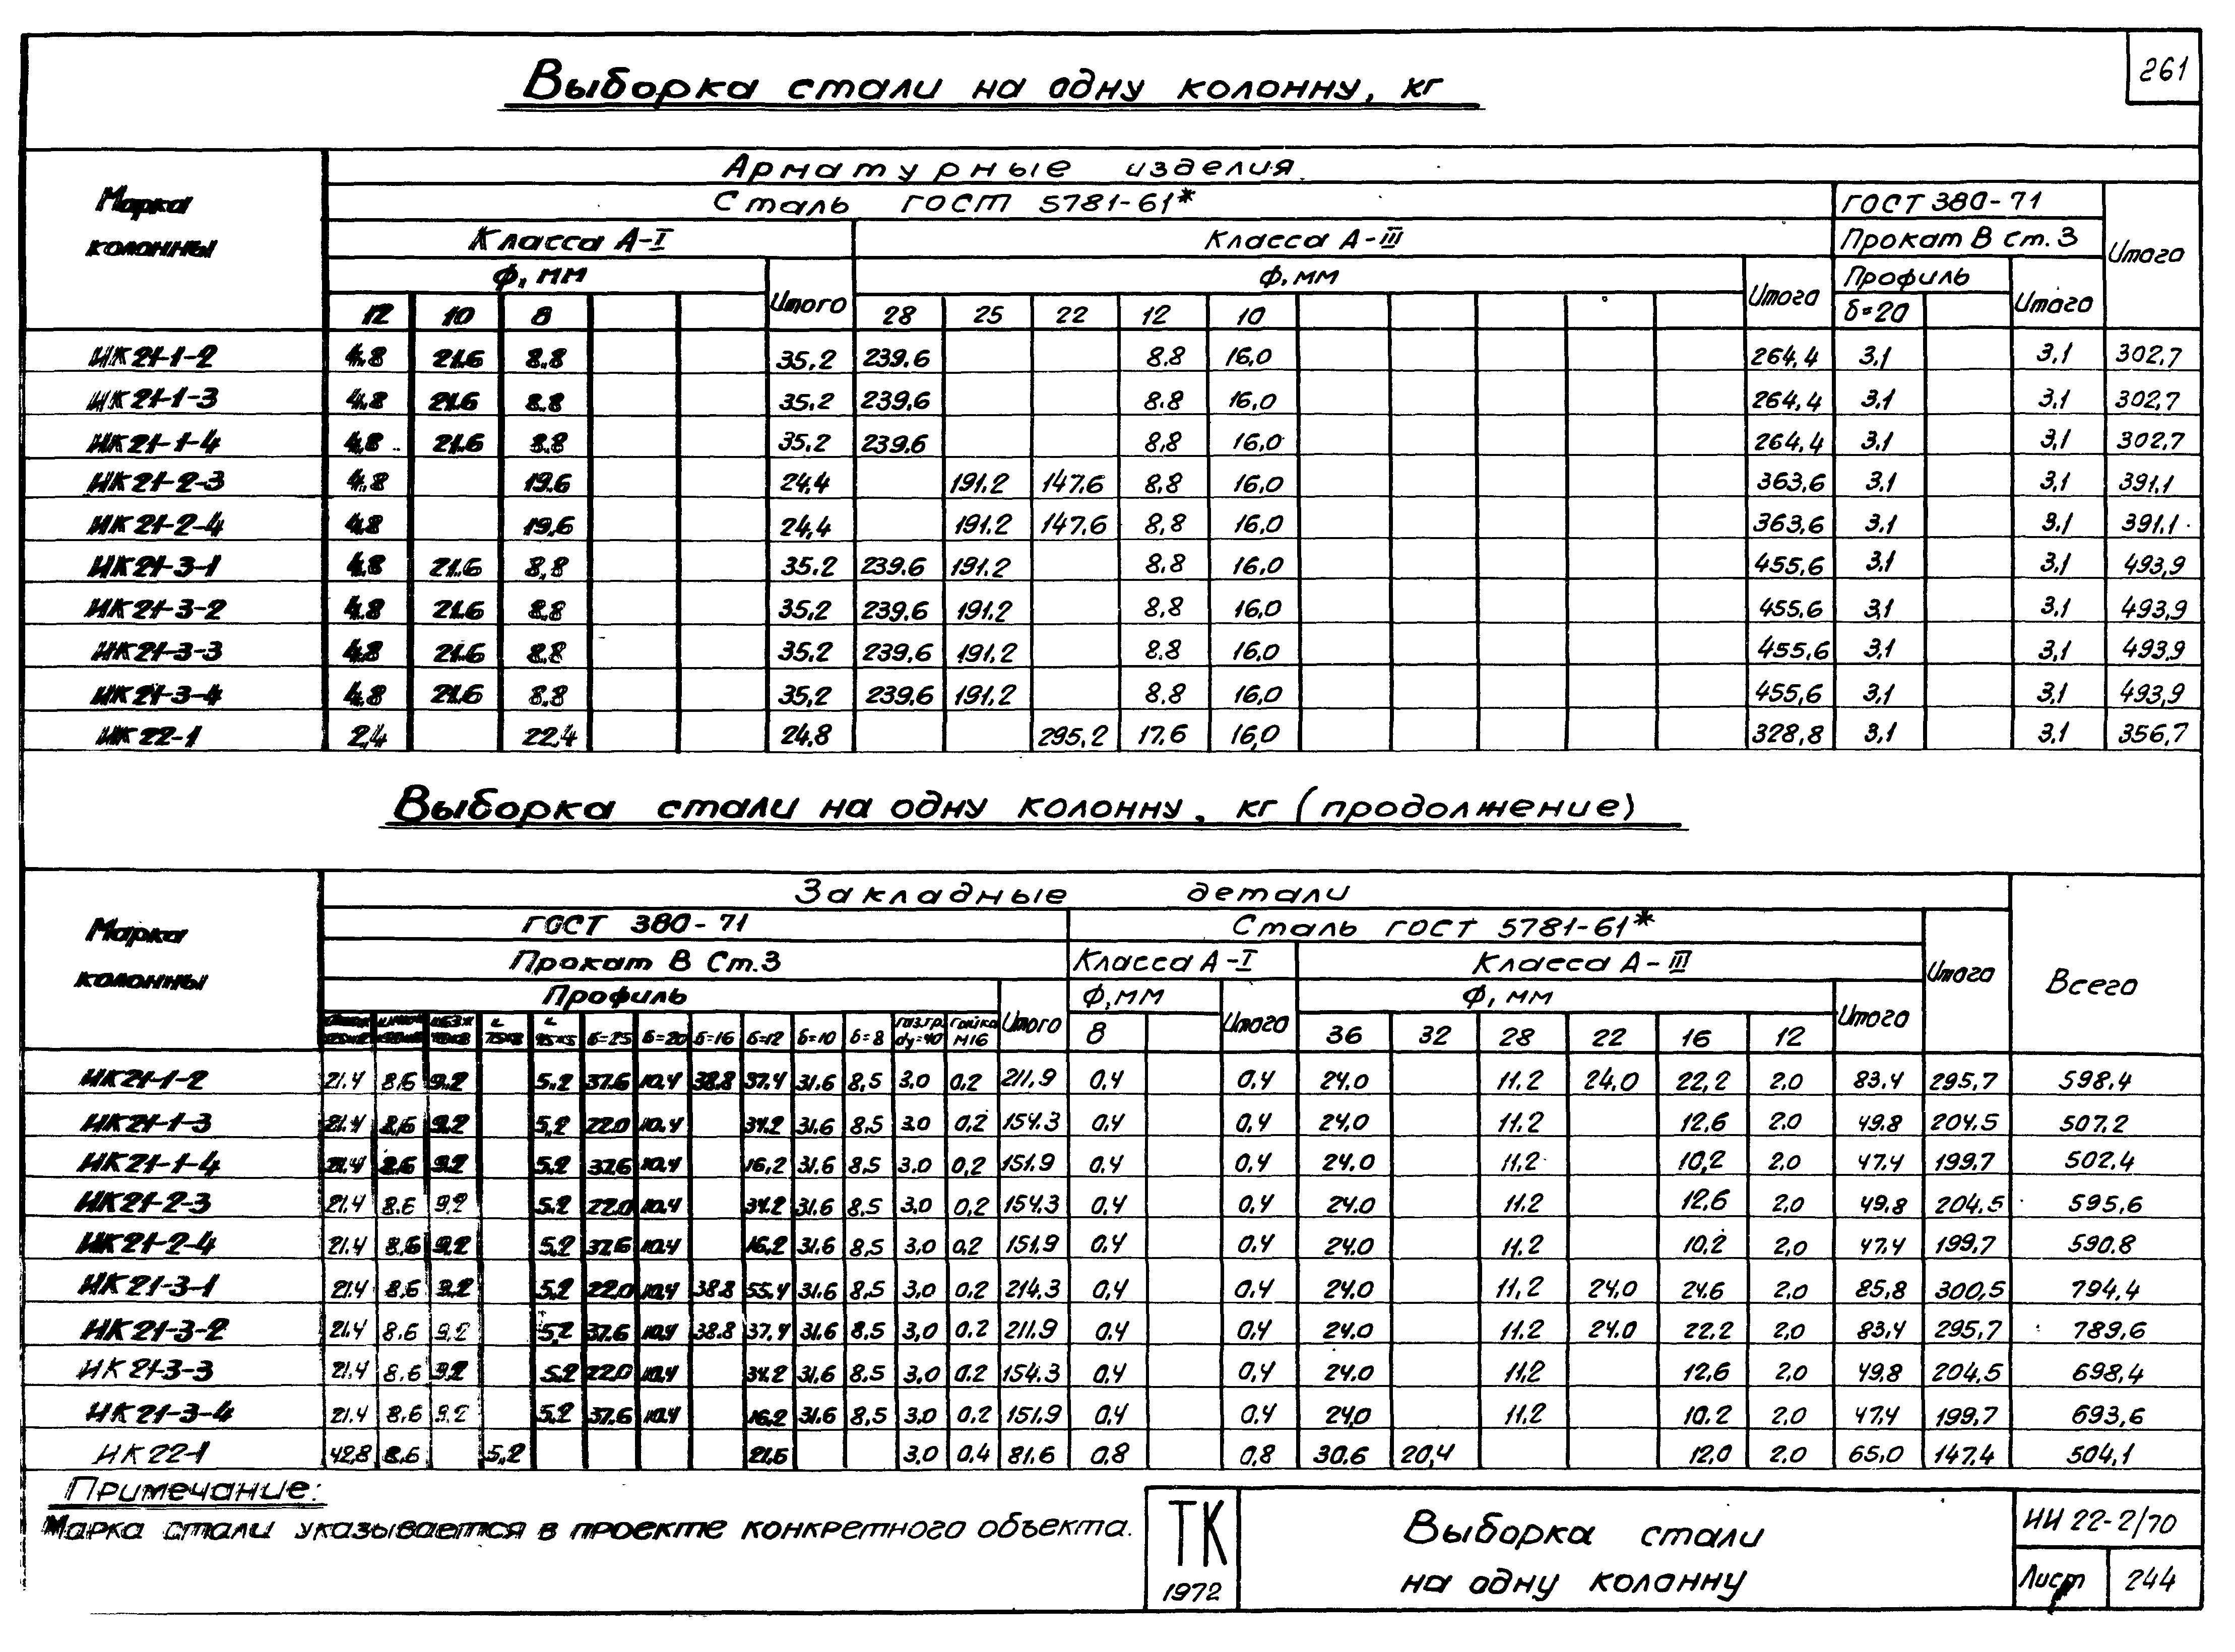 261
Выборка стали на одну колонну, кг
Марка колонны
Арматурные изделия
Сталь ГОСТ 5781-61* ГОСТ 380-71
Класса А-I Класса А-III Прокат В ст. 3 Итого
Ф, мм Итого Ф, мм Итого Профиль Итого
12 10 8 28 25 22 12 10 δ=20
ИК21-1-2 4.8 21.6 8.8 35.2 239.6 8.8 16,0 264,4 3,1 3,1 302,7
ИК21-1-3 4.8 21.6 8.8 35.2 239.6 8.8 16,0 264,4 3.1 3.1 302,7
ИК21-1-4 4,8 21.6 8.8 35.2 239.6 8,8 16,0 264,4 3.1 3,1 302,7
ИК21-2-3 4.8 19.6 24,4 191.2 147.6 8.8 16,0 363,6 3.1 3.1 391,1
ИК21-2-4 4.8 19,6 24,4 191.2 147.6 8,8 16,0 363,6 3,1 3.1 391,1
ИК21-3-1 4.8 21.6 8,8 35.2 239.6 191.2 8.8 16,0 455,6 3.1 3.1 493,9
ИК21-3-2 4.8 21.6 8.8 35,2 239.6 191.2 8.8 16,0 455.6 3,1 3,1 493,9
ИК21-3-3 4.8 21.6 8.8 35.2 239.6 191.2 8.8 16,0 455,6 3,1 3,1 493,9
ИК21-3-4 4,8 21.6 8.8 35,2 239.6 191.2 8.8 16,0 455,6 3,1 3,1 493,9
ИК22-1 2,4 22,4 24,8 295,2 17.6 16,0 328,8 3,1 3,1 356,7
Выборка стали на одну колонну, кг (продолжение)
Марка колонны
Закладные детали
ГОСТ 380-71 Сталь ГОСТ 5781-61*
Прокат В Ст.3 Класса А-I Класса А-III Итого Всего
Профиль Итого Ф, мм Итого Ф, мм Итого
δ=25 δ=20 δ=16 δ=12 δ=10 δ=8 газ.тр. dу=40 Гайка М16 8 36 32 28 22 16 12
ИК21-1-2 21.4 8.6 9.2 5.2 37.6 10.4 38.8 37.4 31.6 8,5 3.0 0.2 211,9 0.4 0,4 24.0 11.2 24.0 22,2 2.0 83.4 295,7 598,4
ИК21-1-3 21.4 8,6 9.2 5,2 22.0 10.4 34.2 31.6 8,5 3.0 0,2 154.3 0,4 0,4 24.0 11.2 12,6 2.0 49.8 204,5 507.2
ИК21-1-4 21.4 8.6 9.2 5.2 37.6 10.4 16,2 31.6 8,5 3.0 0,2 151.9 0,4 0,4 24.0 11.2 10,2 2,0 47.4 199.7 502.4
ИК21-2-3 21.4 8.6 9,2 5.2 22.0 10.4 34.2 31.6 8,5 3.0 0,2 154,3 0,4 0,4 24.0 11.2 12,6 2,0 49,8 204,5 595,6
ИК21-2-4 21.4 8,6 9.2 5.2 37.6 10.4 16.2 31.6 8,5 3,0 0,2 151.9 0,4 0,4 24.0 11.2 10,2 2,0 47.4 199.7 590.8
ИК21-3-1 21.4 8,6 9.2 5.2 22.0 10.4 38.8 55.4 31.6 8,5 3,0 0.2 214.3 0,4 0,4 24.0 11,2 24,0 24.6 2,0 85,8 300,5 794,4
ИК21-3-2 21.4 8.6 9.2 5.2 37.6 10.4 38.8 37.4 31.6 8.5 3,0 0.2 211.9 0,4 0,4 24.0 11.2 24.0 22.2 2,0 83,4 295,7 789,6
ИК21-3-3 21.4 8.6 9.2 5.2 22.0 10.4 34.2 31.6 8.5 3,0 0.2 154.3 0,4 0,4 24.0 11,2 12,6 2,0 49,8 204,5 698,4
ИК21-3-4 21.4 8.6 9.2 5.2 37.6 10.4 16.2 31.6 8.5 3.0 0.2 151.9 0,4 0.4 24,0 11.2 10.2 2,0 47.4 199,7 693,6
ИК22-1 42,8 8.6 5,2 21.6 3.0 0,4 81.6 0,8 0,8 30.6 20,4 12,0 2.0 65,0 147.4 504,1
Примечание:
Марка стали указывается в проекте конкретного объекта.
ТК
1972
Выборка стали
на одну колонну
ИИ 22-2/70
Лист 244